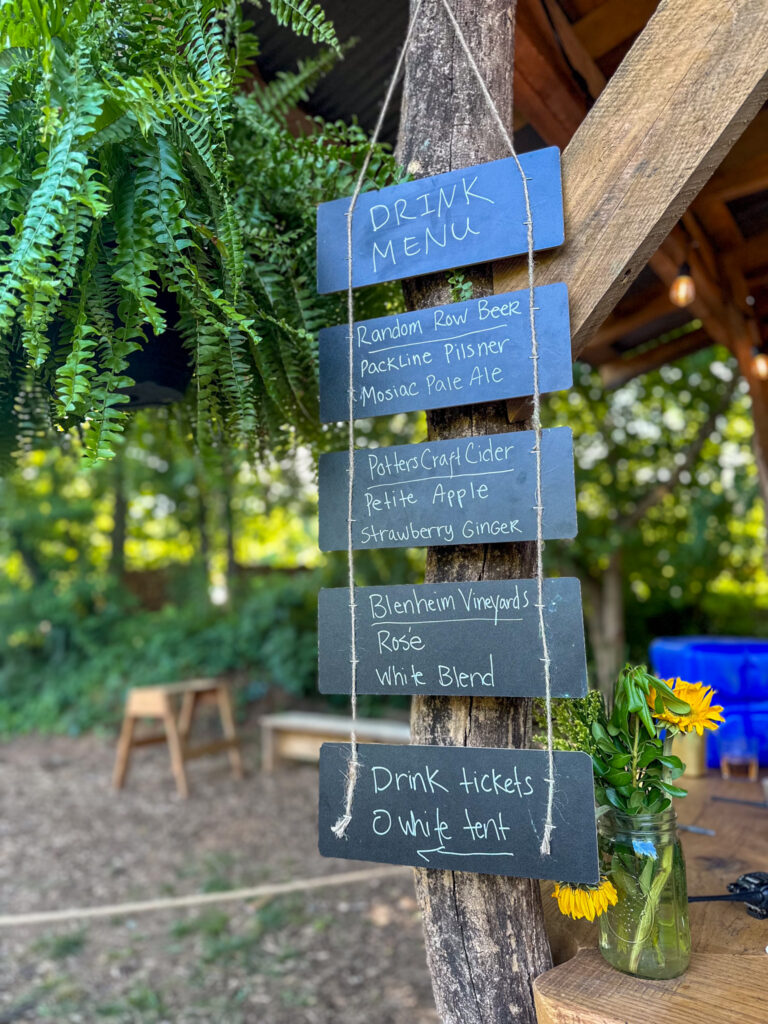 DRINK
MENU
Random Row Beer
Packline Pilsner
Mosiac Pale Ale
Potters Craft Cider
Petite Apple
Strawberry Ginger
Blenheim Vineyards
Rosé
White Blend
Drink tickets
@ white tent